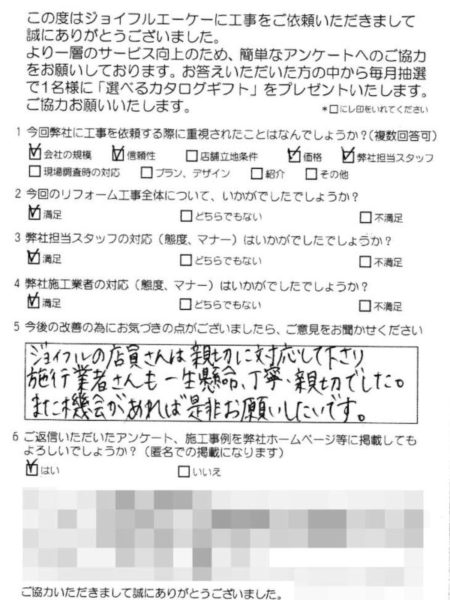 この度はジョイフルエーケーに工事をご依頼いただきまして
誠にありがとうございました。
より一層のサービス向上のため、簡単なアンケートへのご協力
をお願いしております。お答えいただいた方の中から毎月抽選
で1名様に「選べるカタログギフト」をプレゼントいたします。
ご協力お願いいたします。
*□にレ印をいれてください
1 今回弊社に工事を依頼する際に重視されたことはなんでしょうか?(複数回答可)
☑会社の規模 ☑信頼性 □店舗立地条件 ☑価格 ☑弊社担当スタッフ
□現場調査時の対応 □プラン、デザイン □紹介 □その他
2 今回のリフォーム工事全体について、いかがでしたでしょうか?
☑満足 □どちらでもない □不満足
3 弊社担当スタッフの対応(態度、マナー)はいかがでしたでしょうか?
☑満足 □どちらでもない □不満足
4 弊社施工業者の対応(態度、マナー)はいかがでしたでしょうか?
☑満足 □どちらでもない □不満足
5 今後の改善の為にお気づきの点がございましたら、ご意見をお聞かせください
ジョイフルの店員さんは親切に対応して下さり
施行業者さんも一生懸命、丁寧、親切でした。
また機会があれば是非お願いしたいです。
6 ご返信いただいたアンケート、施工事例を弊社ホームページ等に掲載しても
よろしいでしょうか?(匿名での掲載になります)
☑はい □いいえ
ご協力いただきまして誠にありがとうございました。